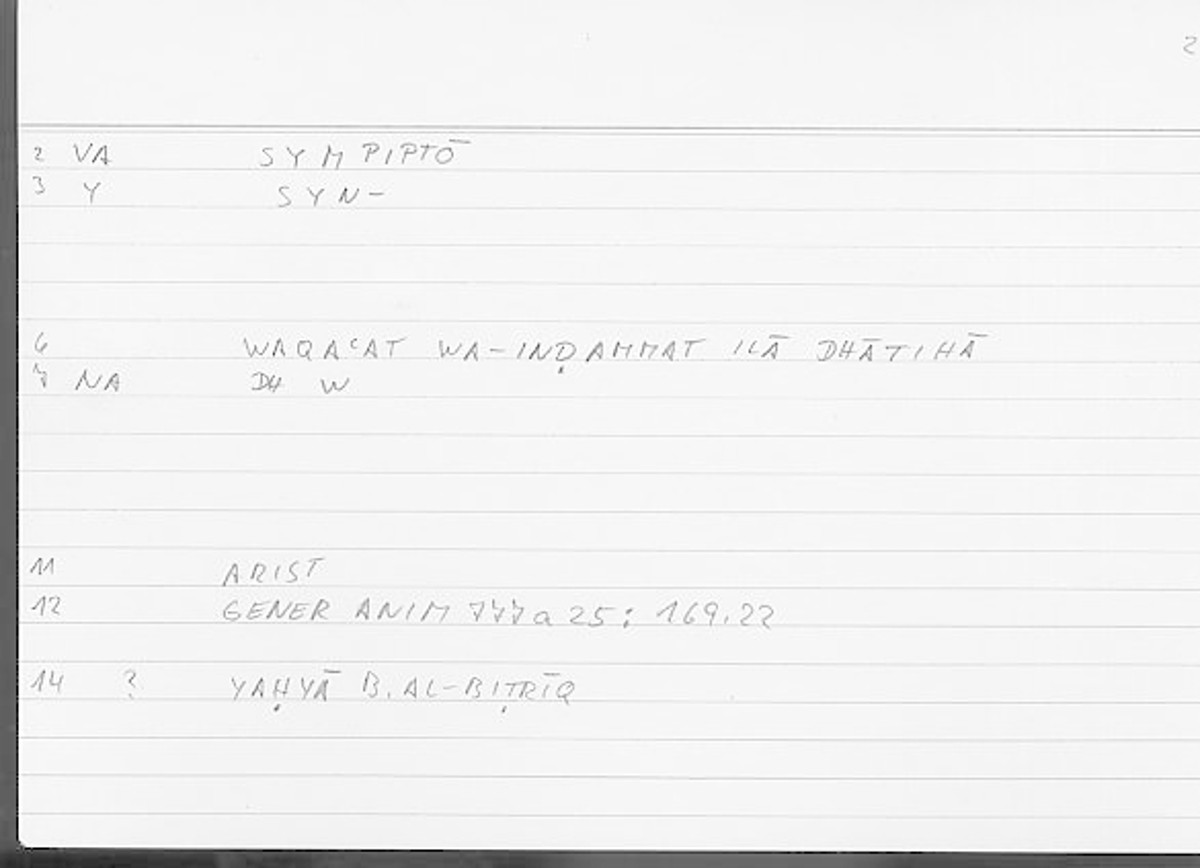 2
2 VA SYMPIPTŌ
3 Y SYN-
6 WAQAʿAT WA-INḌAMMAT ILĀ DHĀTIHĀ
7 NA DH W
11 ARIST
12 GENER ANIM 777a25; 169.22
14 ? YAḤYĀ B. AL-BIṬRĪQ